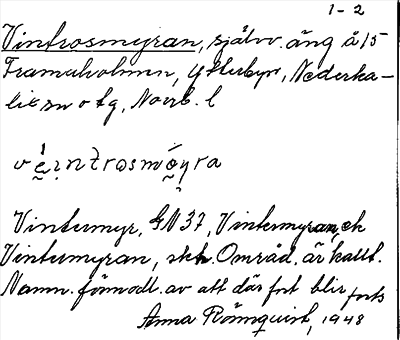 1-2
Vintrosmyran, självv. äng å 15
Framaholmen, Ytterbyn, Nederka-
lix sn o tg, Norrb. l
vè̱i̱ntrosmó̱y̱ra
Vintermyr, GN 37, Vintermyran, ek
Vintermyran, skh. Områd. är kallt.
Namn. förmodl. av att där fort blir
Anna Rönnquist, 1948